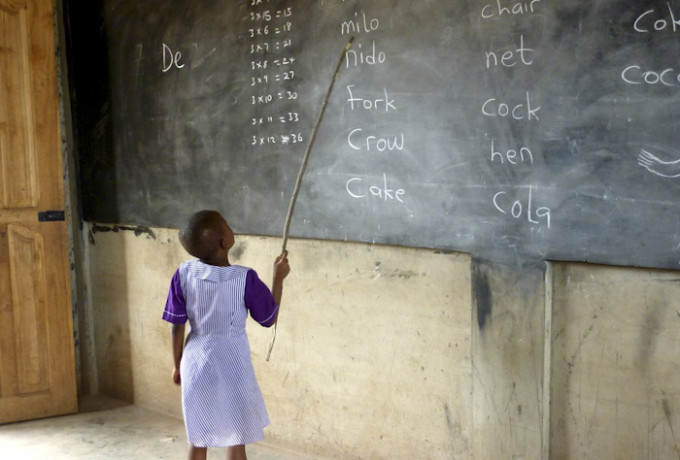 De
3 x 15 = 15
3 x 6 = 18
3 x 7 = 21
3 x 8 = 24
3 x 9 = 27
3 x 10 = 30
3 x 11 = 33
3 x 12 = 36
milo
nido
fork
Crow
Cake
chair
net
Cock
hen
Cola